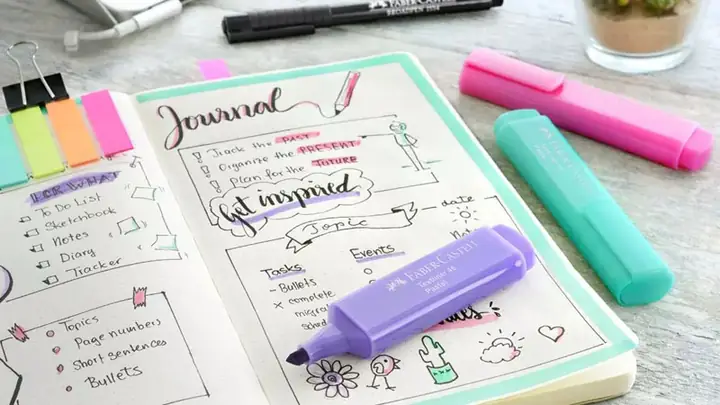 FABER-CASTELL
FOR WHAT
To Do List
Sketchbook
Notes
Diary
Tracker
Topics
Page numbers
Short sentences
Bullets
Journal
! Track the PAST
! Organize the PRESENT
! Plan for the FUTURE
Get inspired
Topic
date
Tasks
Events
Bullets
x complete
FABER-CASTELL
Textliner 46
Pastel